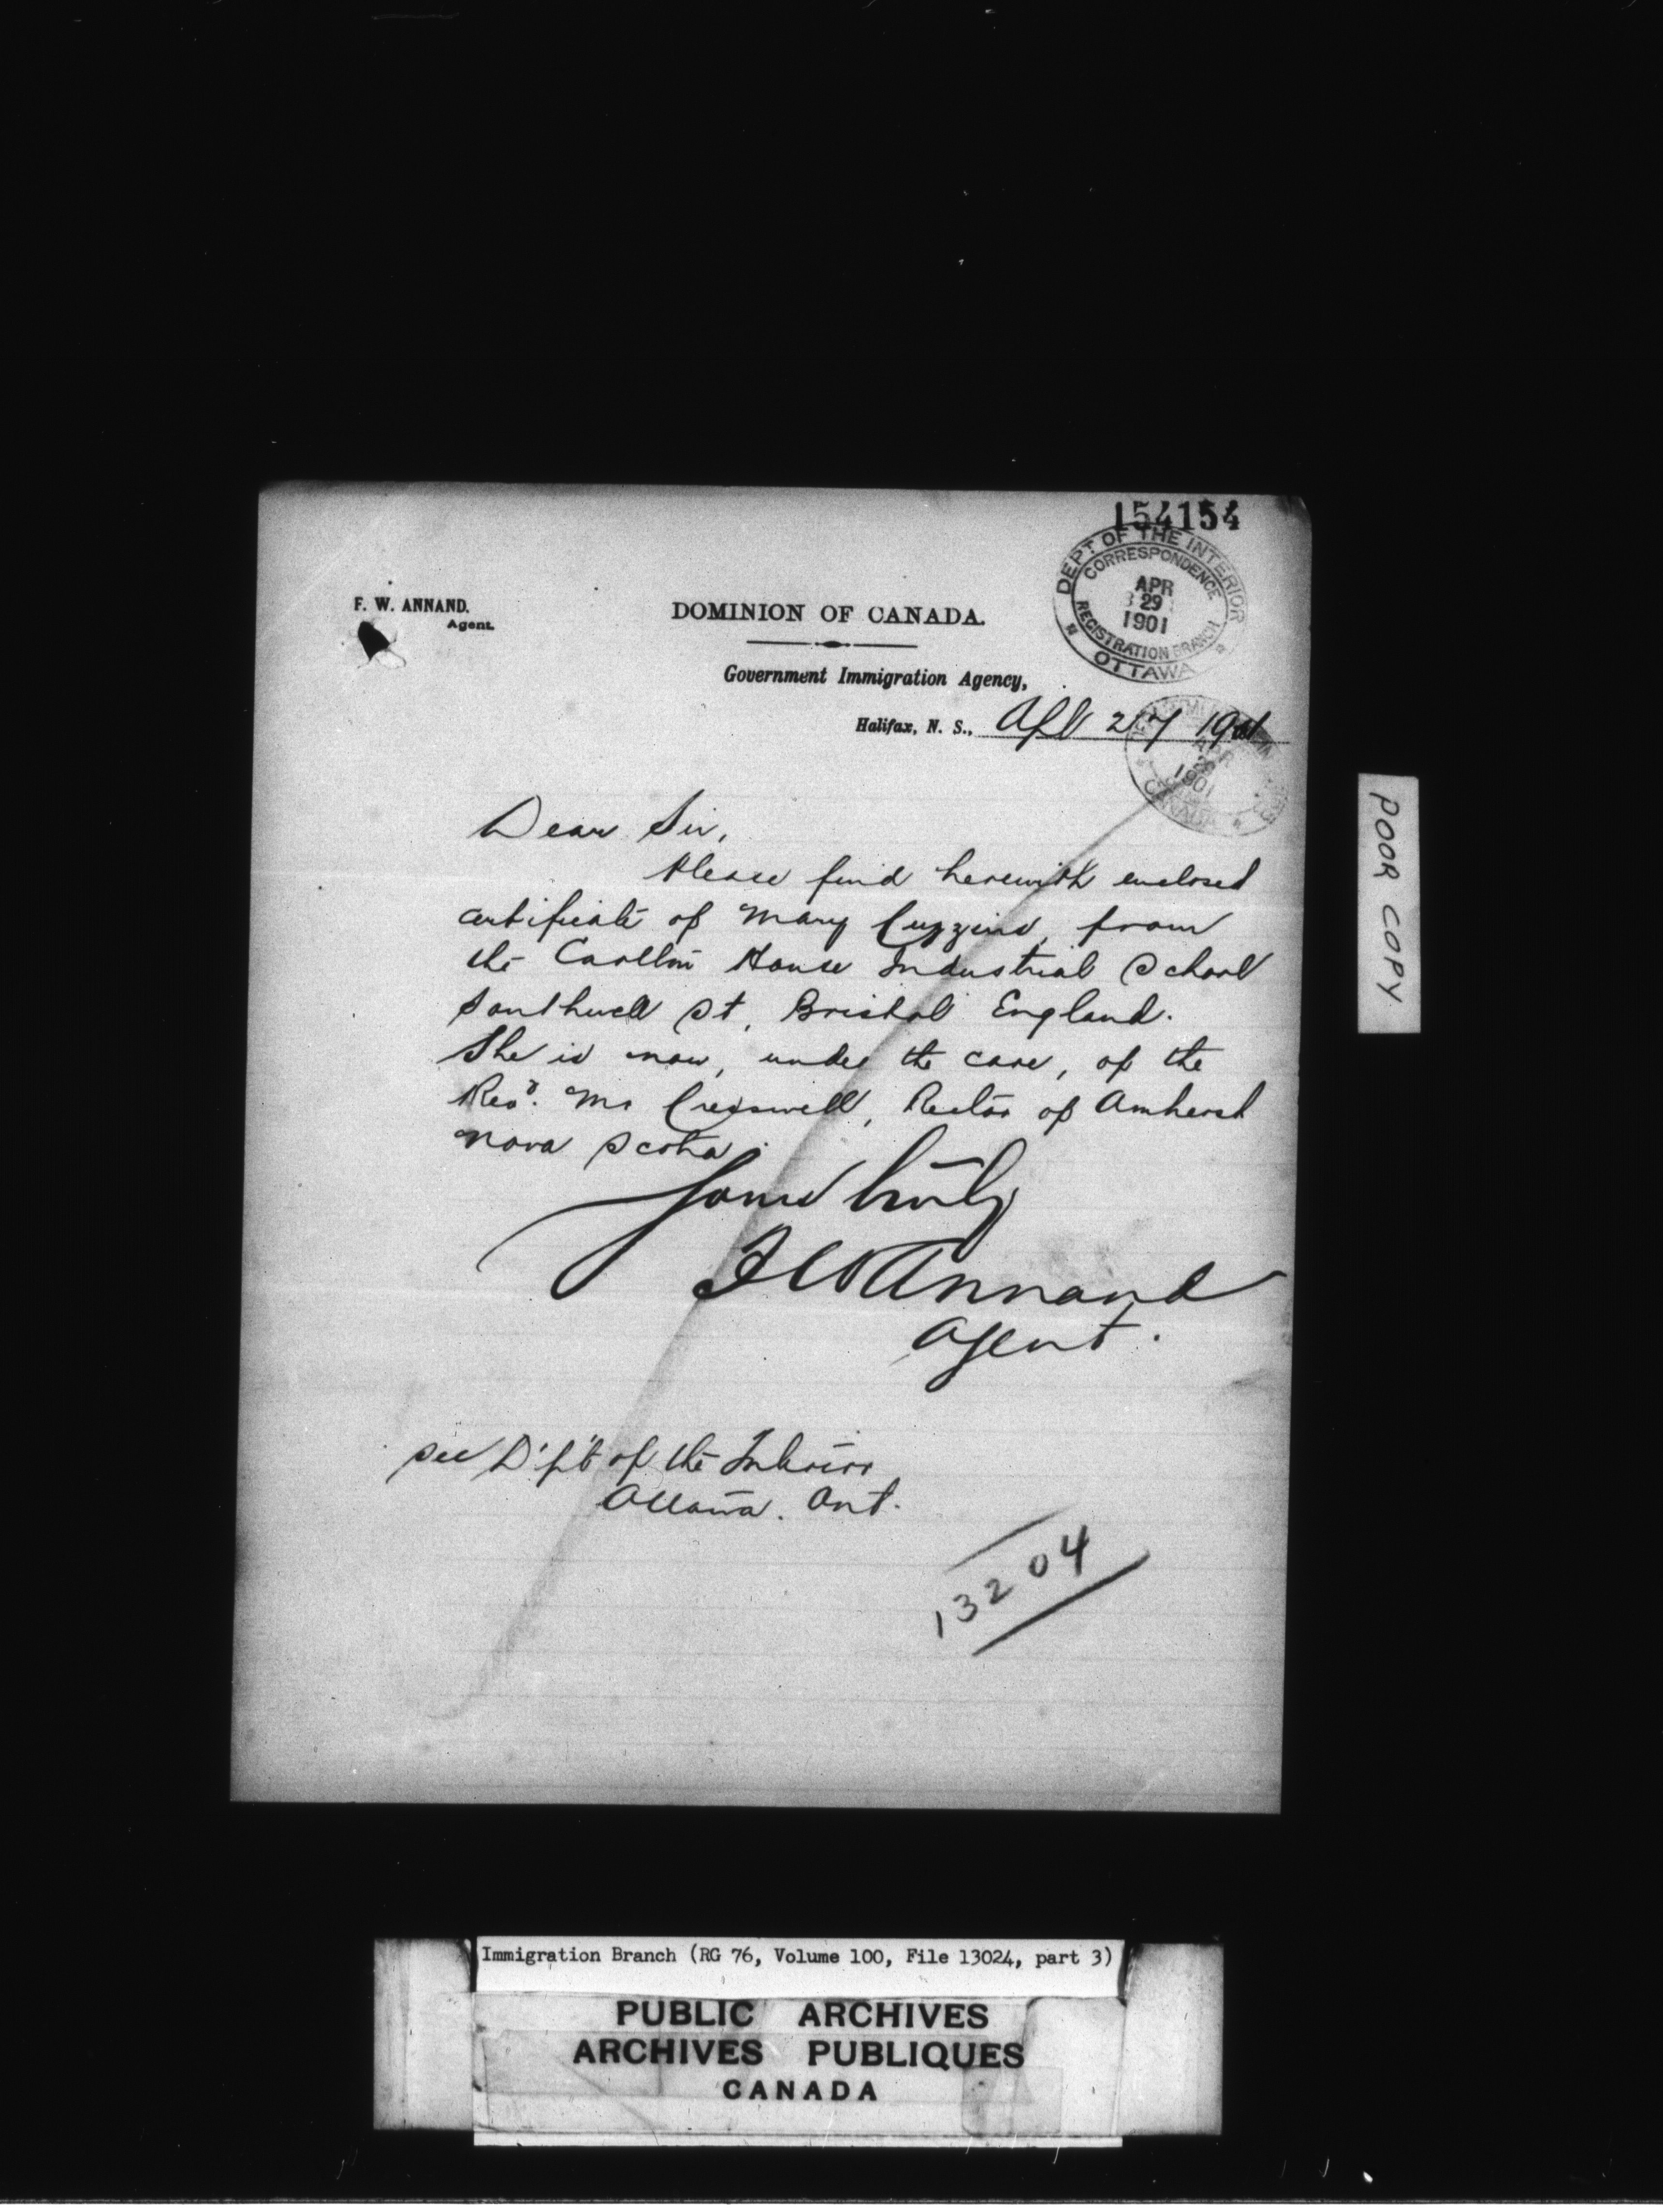 154154
DEPT OF THE INTERIOR
CORRESPONDENCE
APR
29
1901
REGISTRATION BRANCH
OTTAWA
F. W. ANNAND.
Agent.
DOMINION OF CANADA.
Government Immigration Agency,
Halifax, N. S., Apl 27 1901
APR
1901
CANADA
Dear Sir,
Please find herewith enclosed
certificate of Mary Cuzzins, from
the Carlton House Industrial School
Southwell St, Bristol England.
She is now, under the care, of the
Revd. Mr Cresswell, Rector of Amherst
Nova Scotia.
Yours truly
F W Annand
Agent.
Sec D'p't of the Interior
Ottawa. Ont.
13204
POOR COPY
Immigration Branch (RG 76, Volume 100, File 13024, part 3)
PUBLIC ARCHIVES
ARCHIVES PUBLIQUES
CANADA